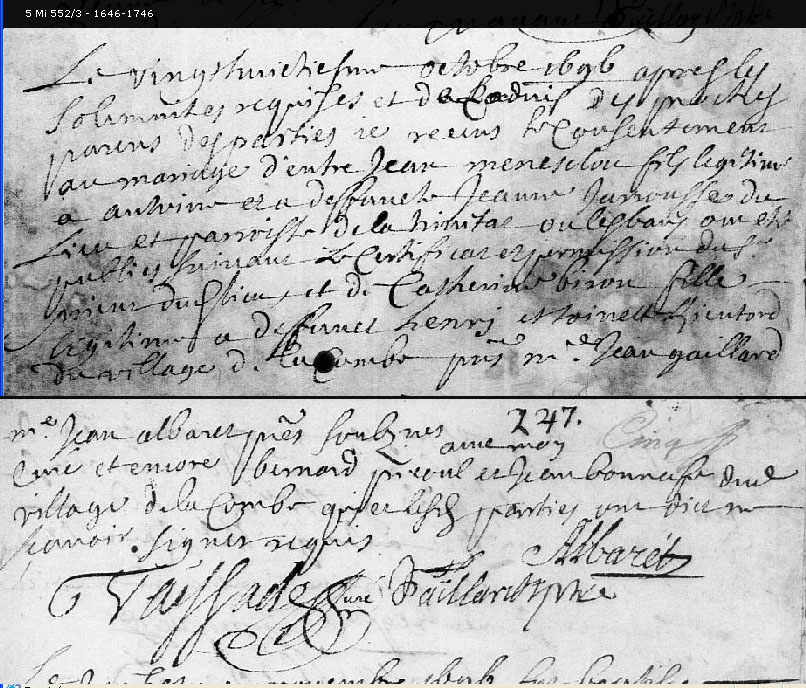 5 Mi 552/3 - 1646-1746
Le vingt huictiesme octobre 1696 apres les
solemnites requises et de Ladvis des proches
parens des parties ie receus le Consentement
au mariage d'entre Jean menesclou fils legitime
a antoine et a deffuncte Jeanne Jarrousse du
Lieu et parroisse de la trinitat ou les bans ont este
publies suivant le Certificat et permission du Sr
prieur dud lieu, et de Catherine biron fille
legitime a deffunct henry et toinette
du village de la Combe pnts me Jean gaillard
247.
me Jean albaret pnts soubznes avec moy
Curé et encore bernard et Jean bonnafe dud
village de la Combe qui et lesd parties ont dict ne
scavoir signer requis
Albaret
Vayssade curé Gaillard ptre
Le novembre 1696